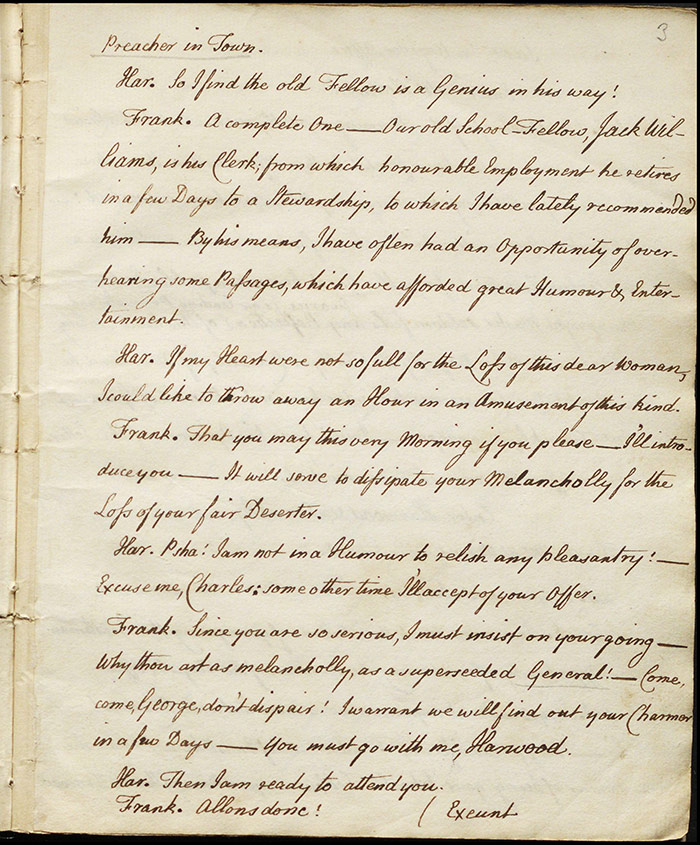 3
Preacher in Town.
Har. So I find the old Fellow is a Genius in his way!
Frank. A complete One — Our old School-Fellow, Jack Wil-
liams, is his Clerk; from which honourable Employment he retires
in a few Days to a Stewardship, to which I have lately recommended
him — By his means, I have often had an Opportunity of over-
hearing some Passages, which have afforded great Humour & Enter-
tainment.
Har. If my Heart were not so full for the Loss of this dear Woman,
I could like to throw away an Hour in an Amusement of this kind.
Frank. That you may this very Morning if you please — I'll intro-
duce you — It will serve to dissipate your Melancholly for the
Loss of your fair Deserter.
Har. Psha! I am not in a Humour to relish any Pleasantry! —
Excuse me, Charles; some other time I'll accept of your Offer.
Frank. Since you are so serious, I must insist on your going —
Why thou art as melancholly, as a superseeded General! — Come,
come, George, don't dispair! I warrant we will find out your Charmer
in a few Days — You must go with me, Harwood.
Har. Then I am ready to attend you.
Frank. Allons donc! ( Exeunt